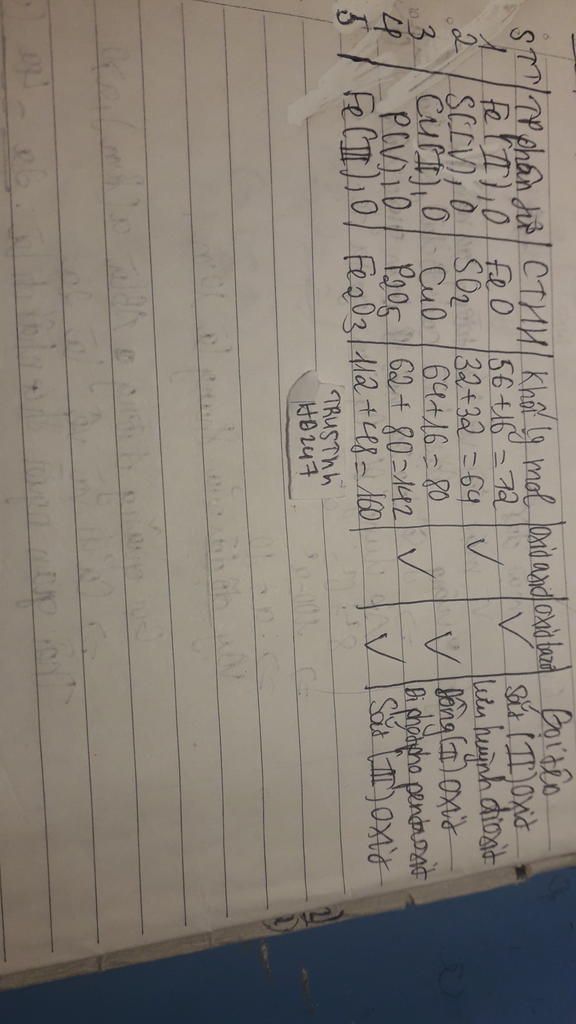 STT TP phân tử CTHH Khối lg mol oxit axit oxit bazơ Gọi tên
1 Fe(II), O FeO 56+16=72 ✓ Sắt (II) oxit
2 S(IV), O SO2 32+32=64 ✓ Lưu huỳnh đioxit
3 Cu(II), O CuO 64+16=80 ✓ Đồng (II) oxit
4 P(V), O P2O5 62+80=142 ✓ Đi photpho pentaoxit
5 Fe(III), O Fe2O3 112+48=160 ✓ Sắt (III) oxit
TRUSTHH
HB247